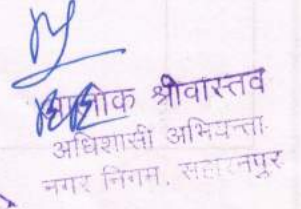 आलोक श्रीवास्तव
अधिशासी अभियन्ता
नगर निगम, सहारनपुर